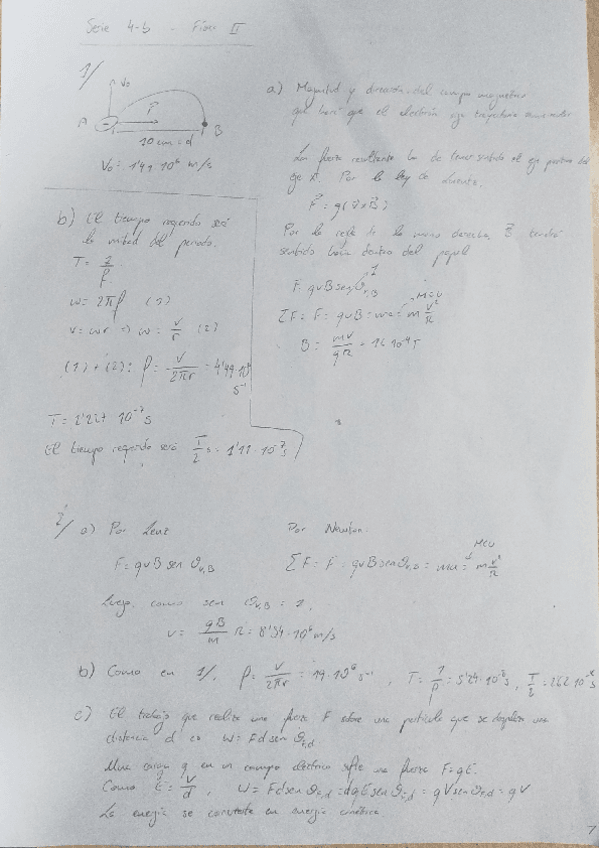 Serie 4-b - Física II
1/
V₀
A
F
B
10 cm = d
V₀ = 1'49 10⁶ m/s
a) Magnitud y dirección del campo magnético
que hará que el electrón siga trayectoria
La fuerza resultante ha de tener sentido
eje x. Por la ley de Lorentz.
F = q(v×B)
Por la regla de la mano derecha, B tendrá
sentido hacia dentro del papel
F = qvB sen θv,B 1
MCU
ΣF = F = qvB = ma = m v²/R
B = mv/qR = 16 10⁻⁴ T
b) El tiempo requerido será
la mitad del periodo.
T = 1/f
ω = 2πf (1)
v = ωr ⇒ ω = v/r (2)
(1) + (2): f = v/2πr = 4'49 10⁶
s⁻¹
T = 2'227 10⁻⁷ s
El tiempo requerido será T/2 = 1'11·10⁻⁷ s
2/ a) Por Lenz
Por Newton
F = qvB sen θv,B
MCU
ΣF = F = qvB sen θv,B = ma = m v²/R
Luego, como sen θv,B = 1,
v = qB/m R = 8'34·10⁶ m/s
b) Como en 1/, f = v/2πr = 19·10⁶ s⁻¹, T = 1/f = 5'24·10⁻⁸ s, T/2 = 2'62 10⁻⁸ s
c) El trabajo que realiza una fuerza F sobre una partícula que se desplaza una
distancia d es W = Fd sen θF,d
Una carga q en un campo eléctrico sufre una fuerza F = qE.
Como E = V/d, W = Fd sen θF,d = dqE sen θF,d = qV sen θF,d = qV
La energía se convierte en energía cinética.
7